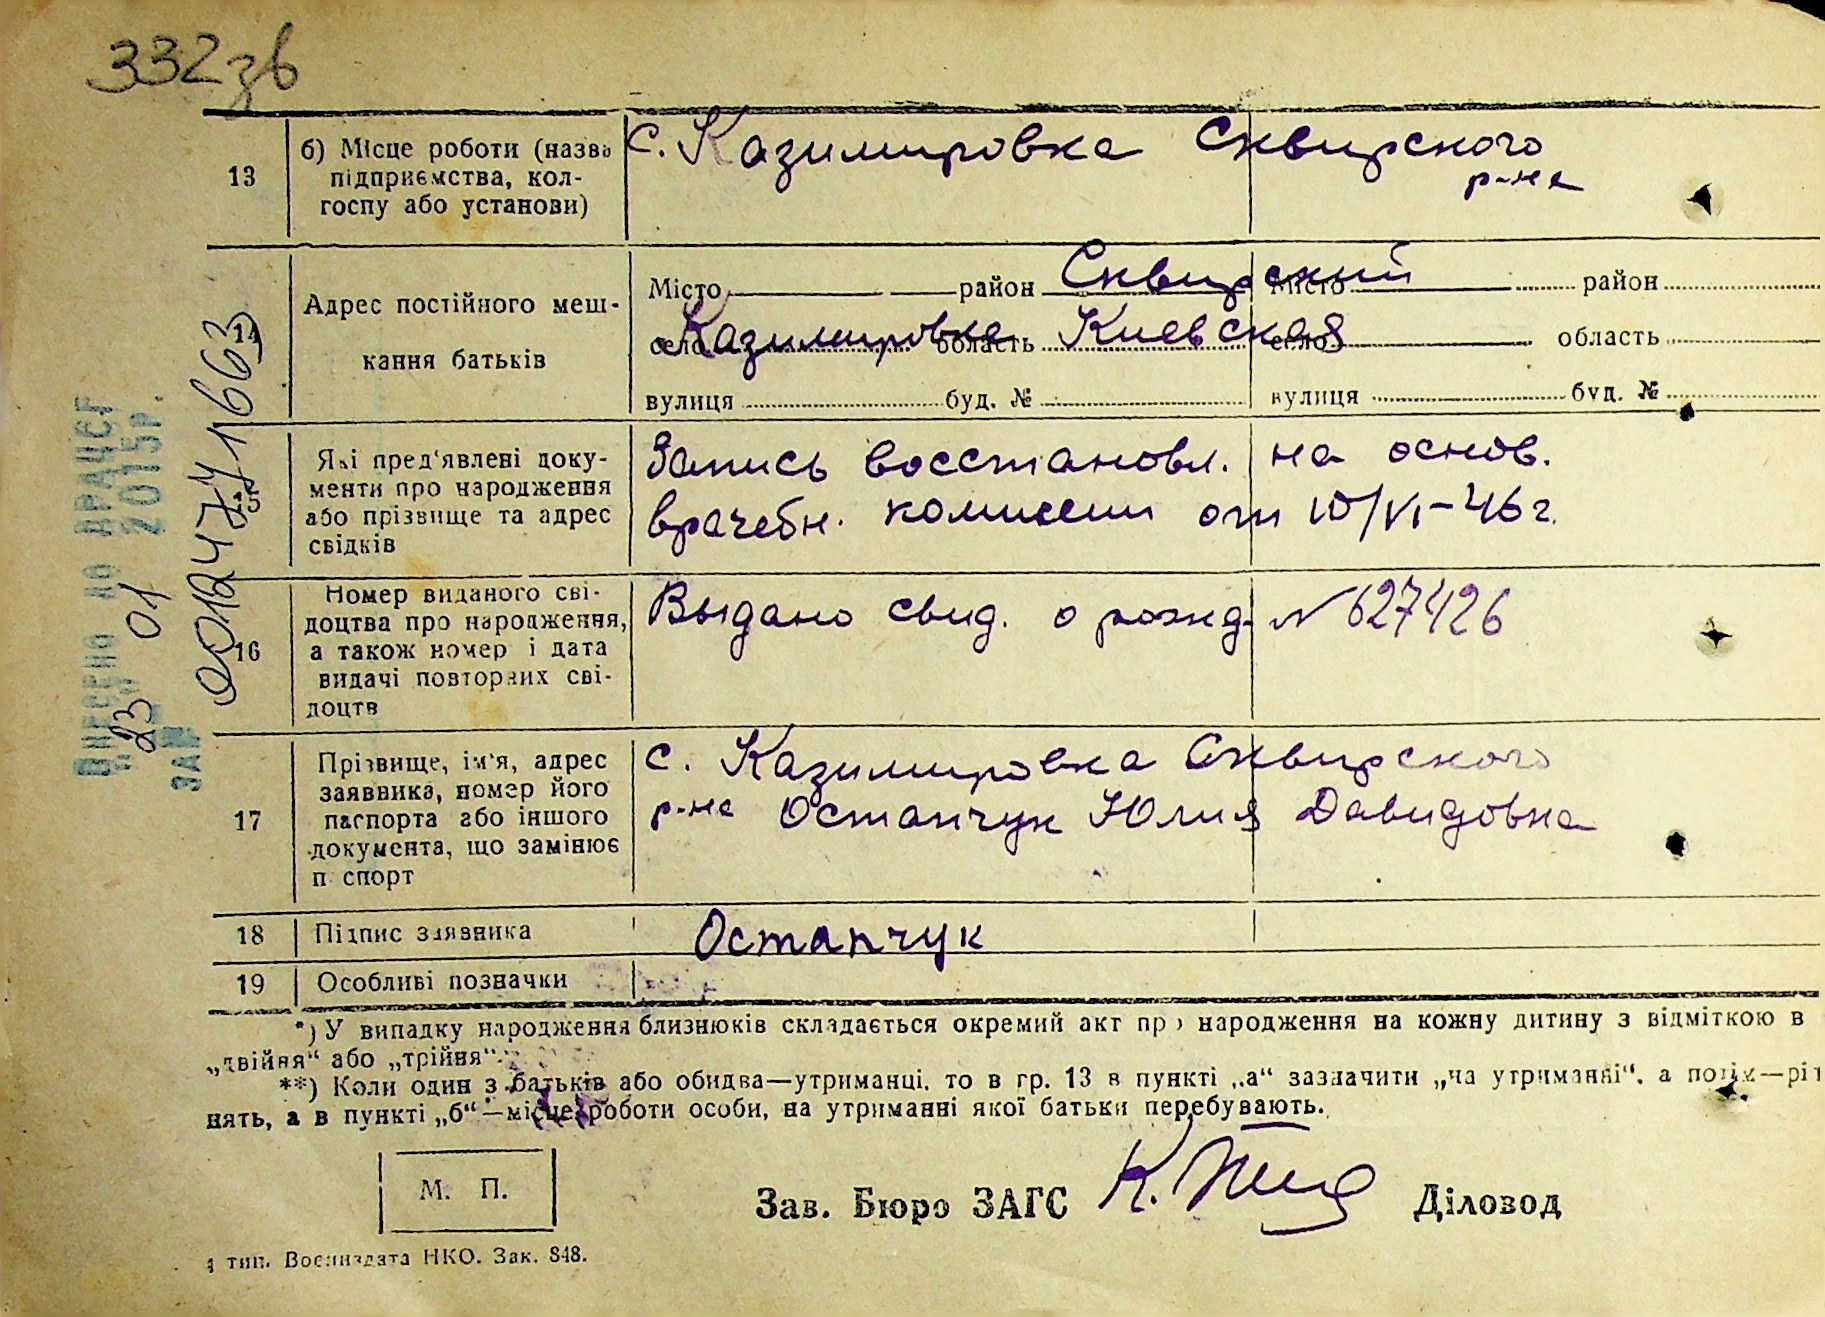 332зв
13
б) Місце роботи (назва підприємства, колгоспу або установи)
с. Казимировка Сквирского
р-на
14
Адрес постійного мешкання батьків
Місто район Сквирский Місто район
село Казимировка область Киевская село область
вулиця буд. № вулиця буд. №
Які пред'явлені документи про народження або прізвище та адрес свідків
Запись восстановл. на основ.
врачебн. комиссии от 10/VI-46 г.
16
Номер виданого свідоцтва про народження, а також номер і дата видачі повторних свідоцтв
Выдано свид. о рожд. N 627426
17
Прізвище, ім'я, адрес заявника, номер його паспорта або іншого документа, що замінює п спорт
с. Казимировка Сквирского
р-на Остапчук Юлия Давидовна
18 Підпис заявника Остапчук
19 Особливі позначки
*) У випадку народження близнюків складається окремий акт про народження на кожну дитину з відміткою в
„двійня“ або „трійня“.
**) Коли один з батьків або обидва—утриманці, то в гр. 13 в пункті „а“ зазначити „на утриманні“, а
нять, а в пункті „б“—місце роботи особи, на утриманні якої батьки перебувають.
М. П.
Зав. Бюро ЗАГС Діловод
тип. Воениздата НКО. Зак. 848.
Внесено до ДРАЦСГ
23 01 2015р.
ЗА №
00124771663